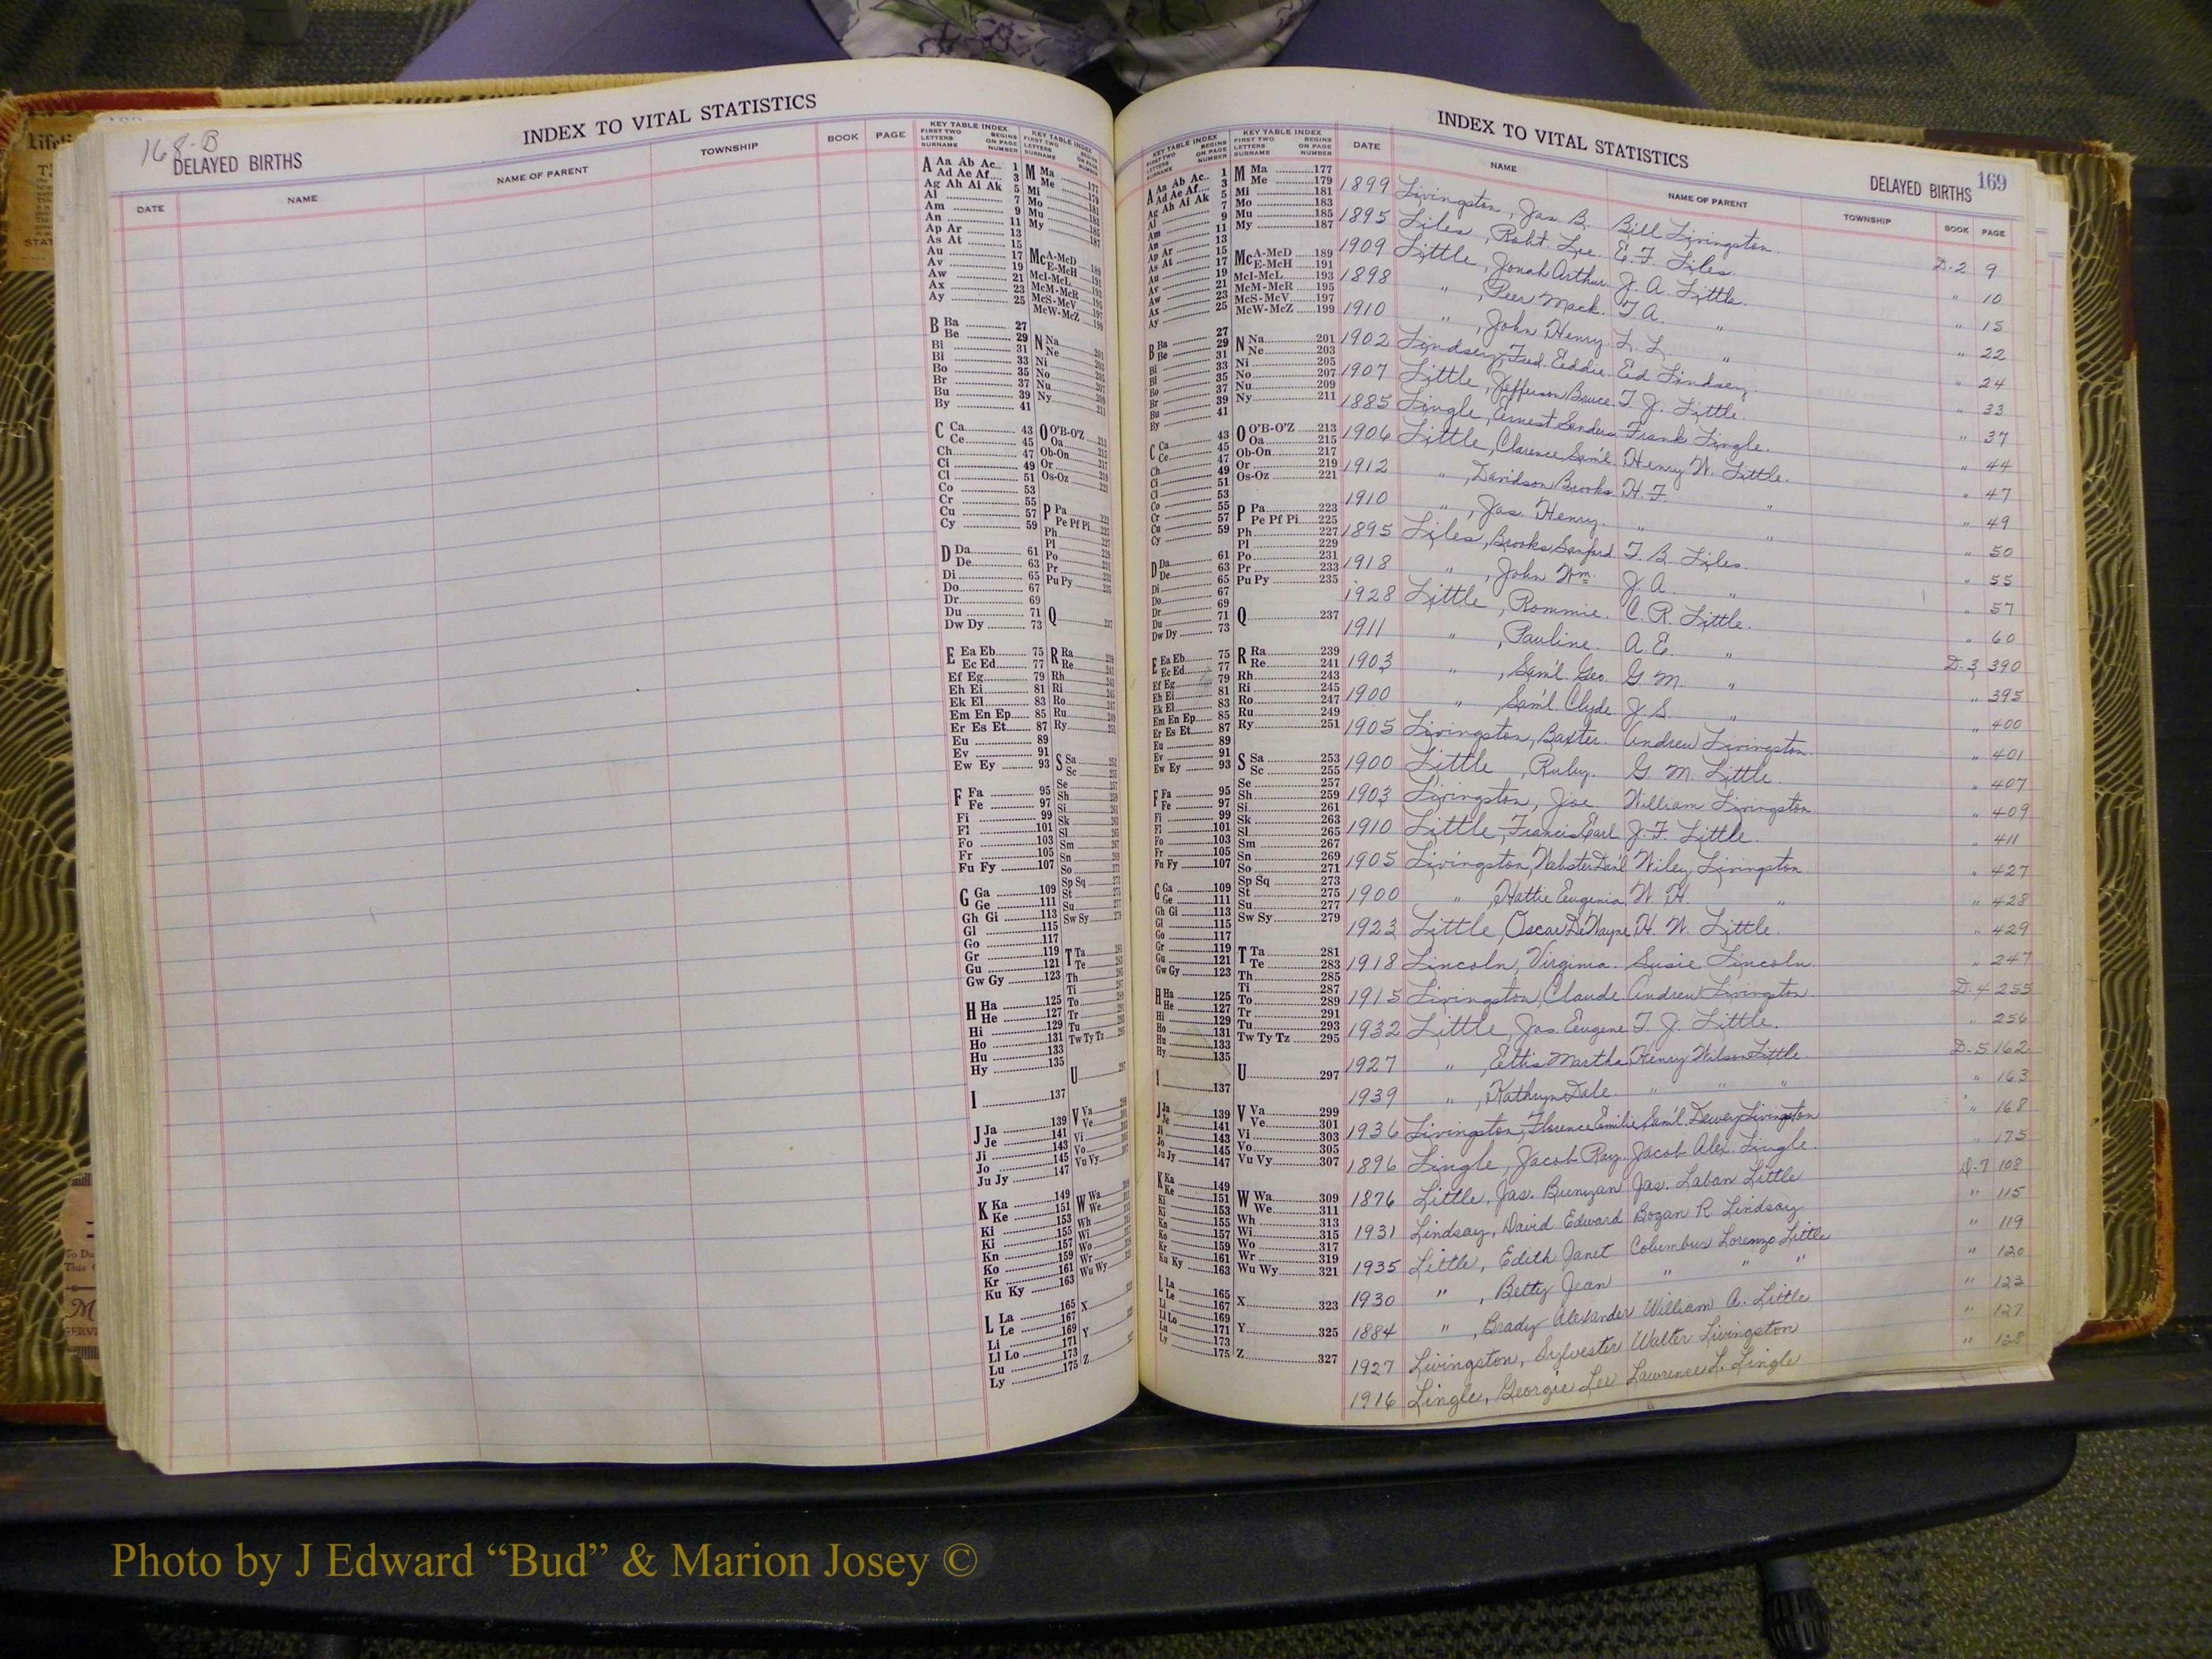 168-B
DELAYED BIRTHS
INDEX TO VITAL STATISTICS
DATE NAME NAME OF PARENT TOWNSHIP BOOK PAGE
KEY TABLE INDEX
FIRST TWO LETTERS SURNAME BEGINS ON PAGE NUMBER
A Aa Ab Ac 1
Ad Ae Af 3
Ag Ah Ai Ak 5
Al 7
Am 9
An 11
Ap Ar 13
As At 15
Au 17
Av 19
Aw 21
Ax 23
Ay 25
B Ba 27
Be 29
Bi 31
Bl 33
Bo 35
Br 37
Bu 39
By 41
C Ca 43
Ce 45
Ch 47
Ci 49
Cl 51
Co 53
Cr 55
Cu 57
Cy 59
D Da 61
De 63
Di 65
Do 67
Dr 69
Du 71
Dw Dy 73
E Ea Eb 75
Ec Ed 77
Ef Eg 79
Eh Ei 81
Ek El 83
Em En Ep 85
Er Es Et 87
Eu 89
Ev 91
Ew Ey 93
F Fa 95
Fe 97
Fi 99
Fl 101
Fo 103
Fr 105
Fu Fy 107
G Ga 109
Ge 111
Gh Gi 113
Gl 115
Go 117
Gr 119
Gu 121
Gw Gy 123
H Ha 125
He 127
Hi 129
Ho 131
Hu 133
Hy 135
I 137
J Ja 139
Je 141
Ji 143
Jo 145
Ju Jy 147
K Ka 149
Ke 151
Ki 153
Ki 155
Kn 157
Ko 159
Kr 161
Ku Ky 163
L La 165
Le 167
Li 169
Ll Lo 171
Lu 173
Ly 175
INDEX TO VITAL STATISTICS
DELAYED BIRTHS 169
KEY TABLE INDEX
FIRST TWO LETTERS SURNAME BEGINS ON PAGE NUMBER
M Ma 177
Me 179
Mi 181
Mo 183
Mu 185
My 187
McA-McD 189
E-McH 191
McI-McL 193
McM-McR 195
McS-McV 197
McW-McZ 199
N Na 201
Ne 203
Ni 205
No 207
Nu 209
Ny 211
O O'B-O'Z 213
Oa 215
Ob-On 217
Or 219
Os-Oz 221
P Pa 223
Pe Pf Pi 225
Ph 227
Pl 229
Po 231
Pr 233
Pu Py 235
Q 237
R Ra 239
Re 241
Rh 243
Ri 245
Ro 247
Ru 249
Ry 251
S Sa 253
Sc 255
Se 257
Sh 259
Si 261
Sk 263
Sl 265
Sm 267
Sn 269
So 271
Sp Sq 273
St 275
Su 277
Sw Sy 279
T Ta 281
Te 283
Th 285
Ti 287
To 289
Tr 291
Tu 293
Tw Ty Tz 295
U 297
V Va 299
Ve 301
Vi 303
Vo 305
Vu Vy 307
W Wa 309
We 311
Wh 313
Wi 315
Wo 317
Wr 319
Wu Wy 321
X 323
Y 325
Z 327
DATE NAME NAME OF PARENT TOWNSHIP BOOK PAGE
1899 Livingston, Jas. B. Bill Livingston D-2 9
1895 Liles, Robt. Lee. E. F. Liles " 10
1909 Little, Jonah Arthur J. A. Little. " 15
1898 " , Peer Mack. T. A. " " 22
1910 " , John Henry L. L. " " 24
1902 Lindsey, Fred Eddie Ed Lindsey " 33
1907 Little, Jefferson Bruce. T. J. Little " 37
1885 Lingle, Ernest Sanders Frank Lingle. " 44
1906 Little, Clarence Sam'l. Henry W. Little. " 47
1912 " , Davidson Brooks. H. F. " " 49
1910 " , Jas. Henry. " " " 50
1895 Liles, Brooks Sanford T. B. Liles. " 55
1918 " , John Wm. J. A. " " 57
1928 Little, Rommie. C. R. Little. " 60
1911 " , Pauline. A. E. " D-3 390
1903 " , Sam'l. Geo. G. M. " " 395
1900 " , Sam'l. Clyde J. S. " " 400
1905 Livingston, Baxter. Andrew Livingston. " 401
1900 Little, Ruby. G. M. Little. " 407
1903 Livingston, Joe. William Livingston " 409
1910 Little, Francis Earl J. F. Little. " 411
1905 Livingston, Webster Dan'l Wiley Livingston " 427
1900 " , Hattie Eugenia W. H. " " 428
1923 Little, Oscar DeWayne H. W. Little. " 429
1918 Lincoln, Virginia. Susie Lincoln. " 247
1915 Livingston, Claude. Andrew Livingston. D-4 255
1932 Little, Jas. Eugene T. J. Little. " 256
1927 " , Ettis Martha Henry Wilson Little. D-5 162
1939 " , Kathryn Dale. " " " " 163
1936 Livingston, Florence Emilie Sam'l. Dewey Livingston " 168
1896 Lingle, Jacob Ray. Jacob Alex. Lingle. " 175
1876 Little, Jas. Bunyan Jas. Laban Little D-7 108
1931 Lindsay, David Edward Bogan R. Lindsay " 115
1935 Little, Edith Janet Columbus Lorenzo Little " 119
1930 " , Betty Jean " " " " 120
1884 " , Brady Alexander William A. Little " 123
1927 Livingston, Sylvester Walter Livingston " 127
1916 Lingle, Georgie Lee Lawrence L. Lingle " 128
Photo by J Edward “Bud” & Marion Josey ©